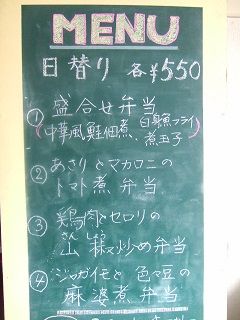 MENU
日替り 各¥550
① 盛合せ弁当
(中華風鮭佃煮、白身魚フライ、煮玉子)
② あさりとマカロニの
トマト煮 弁当
③ 鶏肉とセロリの
山椒炒め弁当
さん
④ ジャガイモと色々豆の
麻婆煮 弁当